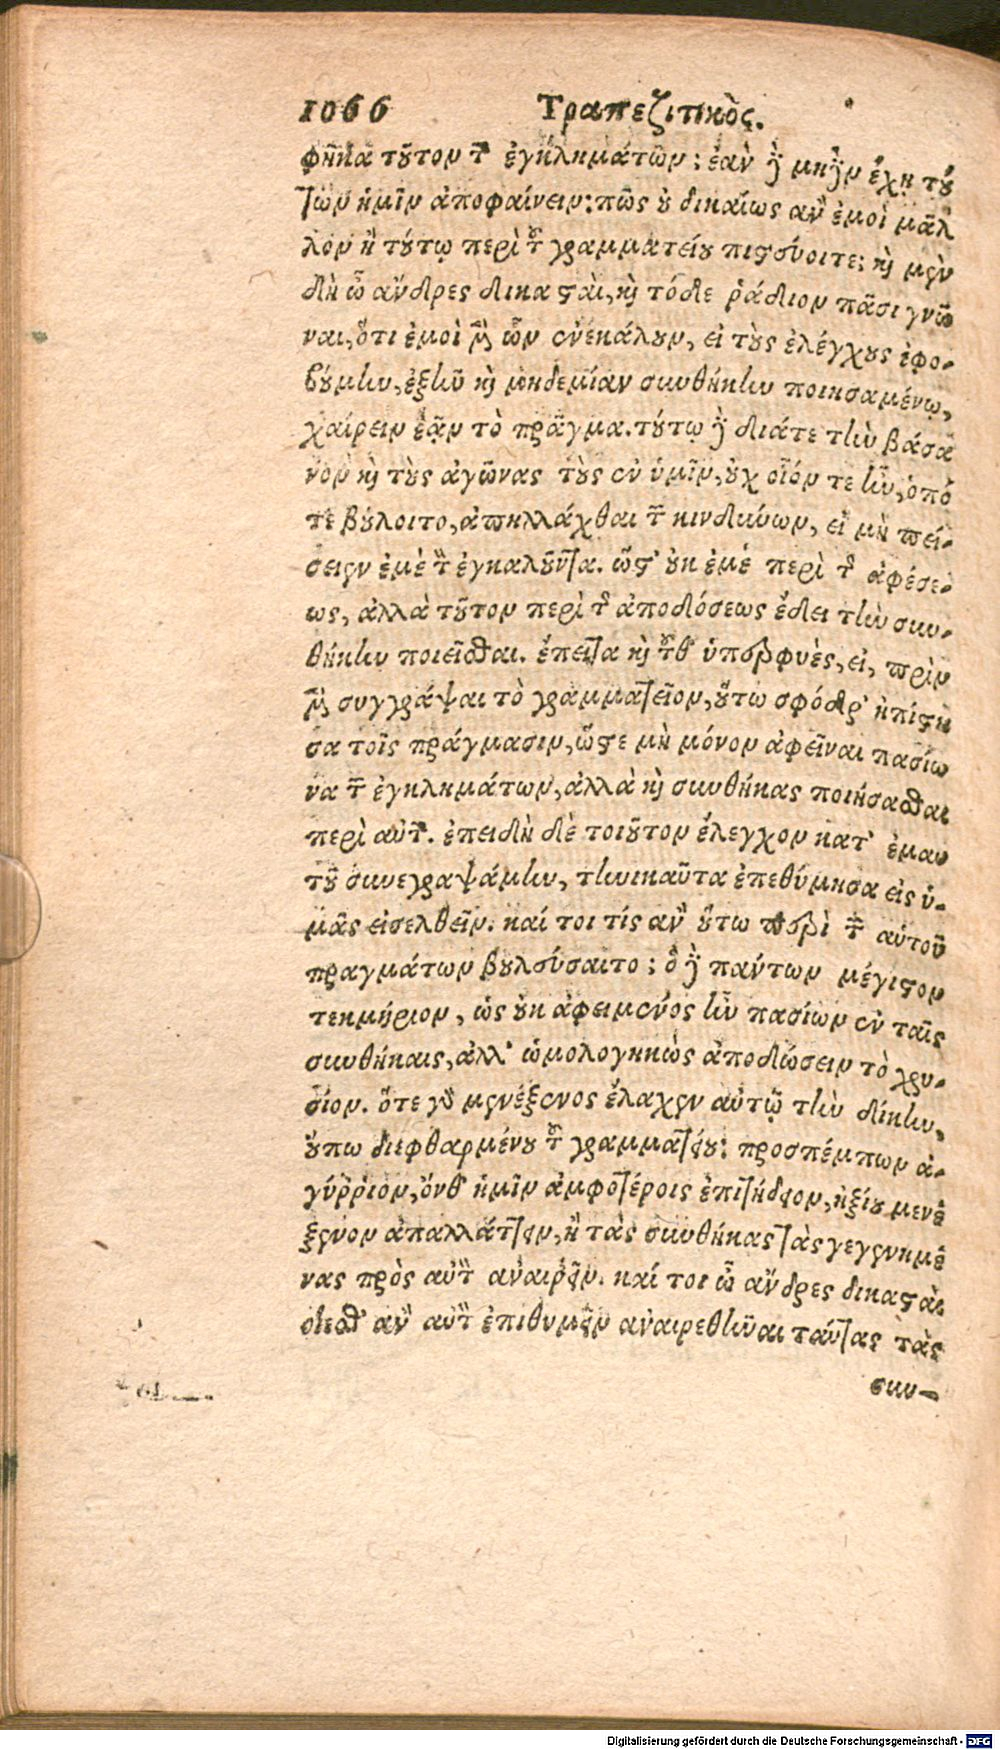 1066 Τραπεζιτικὸς.
φῆκα τοῦτον τῶν ἐγκλημάτων; ἐὰν δὲ μηδὲν ἔχῃ τού
των ἡμῖν ἀποφαίνειν: πῶς οὐ δικαίως ἂν ἐμοὶ μᾶλ
λον ἢ τούτῳ περὶ τοῦ γραμματείου πιστεύοιτε; καὶ μὲν
δὴ ὦ ἄνδρες δικασταὶ, καὶ τόδε ῥάδιον πᾶσι γνῶ
ναι, ὅτι ἐμοὶ μὲν ὧν ἐνεκάλουν, εἰ τοὺς ἐλέγχους ἐφο-
βούμην, ἐξῆν καὶ μηδεμίαν συνθήκην ποιησαμένῳ,
χαίρειν ἐᾷν τὸ πρᾶγμα. τούτῳ δὲ διάτε τὴν βάσα
νον καὶ τοὺς ἀγῶνας τοὺς ἐν ὑμῖν, οὐχ οἷόν τε ἦν, ὁπό
τε βούλοιτο, ἀπηλλάχθαι τῶν κινδύνων, εἰ μὴ πεί-
σειεν ἐμὲ τὸν ἐγκαλοῦντα. ὥστ' οὐκ ἐμὲ περὶ τῆς ἀφέσε-
ως, ἀλλὰ τοῦτον περὶ τῆς ἀποδόσεως ἔδει τὴν συν-
θήκην ποιεῖσθαι. ἔπειτα καὶ τοῦθ' ὑπερφυὲς, εἰ, πρὶν
μὲν συγγράψαι τὸ γραμματεῖον, οὕτω σφόδρ' ἠπίστη
σα τοῖς πράγμασιν, ὥστε μὴ μόνον ἀφεῖναι πασίω
να τῶν ἐγκλημάτων, ἀλλὰ καὶ συνθήκας ποιήσασθαι
περὶ αὐτῶν. ἐπειδὴ δὲ τοιοῦτον ἔλεγχον κατ' ἐμαυ
τοῦ συνεγραψάμην, τηνικαῦτα ἐπεθύμησα εἰς ὑ-
μᾶς εἰσελθεῖν. καί τοι τίς ἂν οὕτω περὶ τῶν αὑτοῦ
πραγμάτων βουλεύσαιτο; ὃ δὲ πάντων μέγιστον
τεκμήριον, ὡς οὐκ ἀφειμένος ἦν πασίων ἐν ταῖς
συνθήκαις, ἀλλ' ὡμολογηκὼς ἀποδώσειν τὸ χρυ-
σίον. ὅτε γὰρ μενέξενος ἔλαχεν αὐτῷ τὴν δίκην,
οὔπω διεφθαρμένου τοῦ γραμματείου: προσπέμπων ἀ-
γύῤῥιον, ὄνθ' ἡμῖν ἀμφοτέροις ἐπιτήδειον, ἠξίου μενέ
ξενον ἀπαλλάττειν, ἢ τὰς συνθήκας τὰς γεγενημέ
νας πρὸς αὐτὸν ἀναιρεῖν. καί τοι ὦ ἄνδρες δικασταὶ
οἴεσθ' ἂν αὐτὸν ἐπιθυμεῖν ἀναιρεθῆναι ταύτας τὰς
συν-
Digitalisierung gefördert durch die Deutsche Forschungsgemeinschaft - DFG